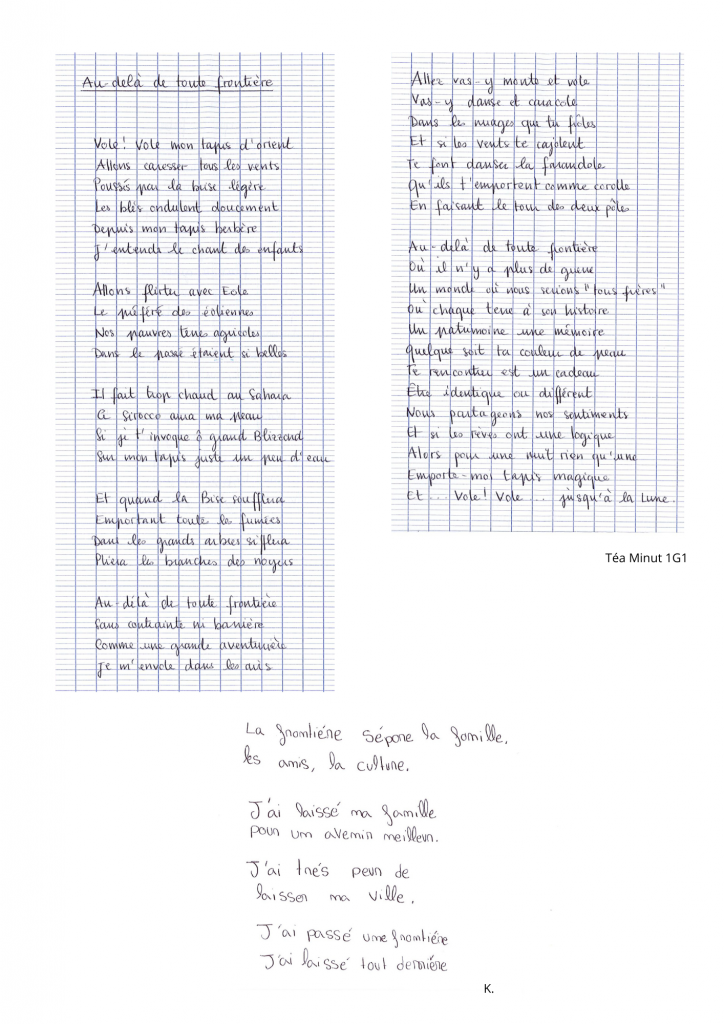 Au-delà de toute frontière
Vole ! Vole mon tapis d'orient
Allons caresser tous les vents
Poussés par la brise légère
Les blés ondulent doucement
Depuis mon tapis berbère
J'entends le chant des enfants
Allons flirter avec Eole
Le préféré des éoliennes
Nos pauvres terres agricoles
Dans le passé étaient si belles
Il fait trop chaud au Sahara
Ce Sirocco aura ma peau
Si je t'invoque ô grand Blizzard
Sur mon tapis juste un peu d'eau
Et quand la Bise soufflera
Emportant toute les fumées
Dans les grands arbres sifflera
Pliera les branches des noyers
Au-délà de toute frontière
Sans contrainte ni barrière
Comme une grande aventurière
Je m'envole dans les airs
Allez vas-y monte et vole
Vas-y danse et caracole
Dans les nuages que tu frôles
Et si les vents te cajolent
Te font danser la farandole
Qu'ils t'emportent comme corolle
En faisant le tour des deux pôles
Au-delà de toute frontière
Où il n'y a plus de guerre
Un monde où nous serions "tous frères"
Où chaque terre à son histoire
Un patrimoine une mémoire
Quelque soit ta couleur de peau
Te rencontrer est un cadeau
Être identique ou différent
Nous partageons nos sentiments
Et si les rêves ont une logique
Alors pour une nuit rien qu'une
Emporte-moi tapis magique
Et ... Vole ! Vole ... jusqu'à la Lune.
Téa Minut 1G1
La frontiére sépare la famille,
les amis, la culture.
J'ai laissé ma famille
pour um avenir meilleur.
J'ai trés peur de
laisser ma ville.
J'ai passé une frontiére
J'ai laissé tout derriére
K.